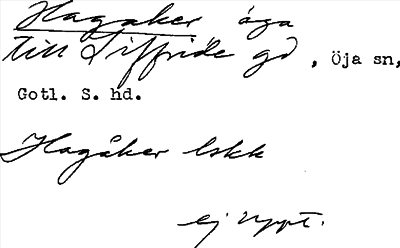 Hagåker äga
till Siffride gd, Öja sn,
Gotl. S. hd.
Hagåker lskk
ej uppt.